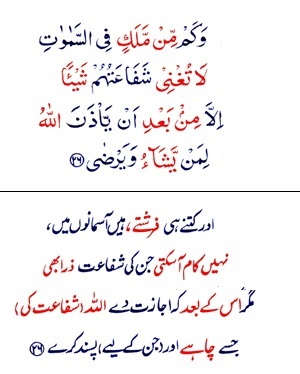 وَكَمْ مِّنْ مَّلَكٍ فِى السَّمٰوٰتِ
لَا تُغْنِىْ شَفَاعَتُهُمْ شَيْئًا
اِلَّا مِنْۢ بَعْدِ اَنْ يَّاْذَنَ اللّٰهُ
لِمَنْ يَّشَآءُ وَيَرْضٰى ﴿۲۶﴾
اور کتنے ہی فرشتے، ہیں آسمانوں میں،
نہیں کام آسکتی جن کی شفاعت ذرا بھی
مگر اُس کے بعد کہ اجازت دے اللہ (شفاعت کی)
جسے چاہے اور (جن کے لیے) پسند کرے ﴿۲۶﴾